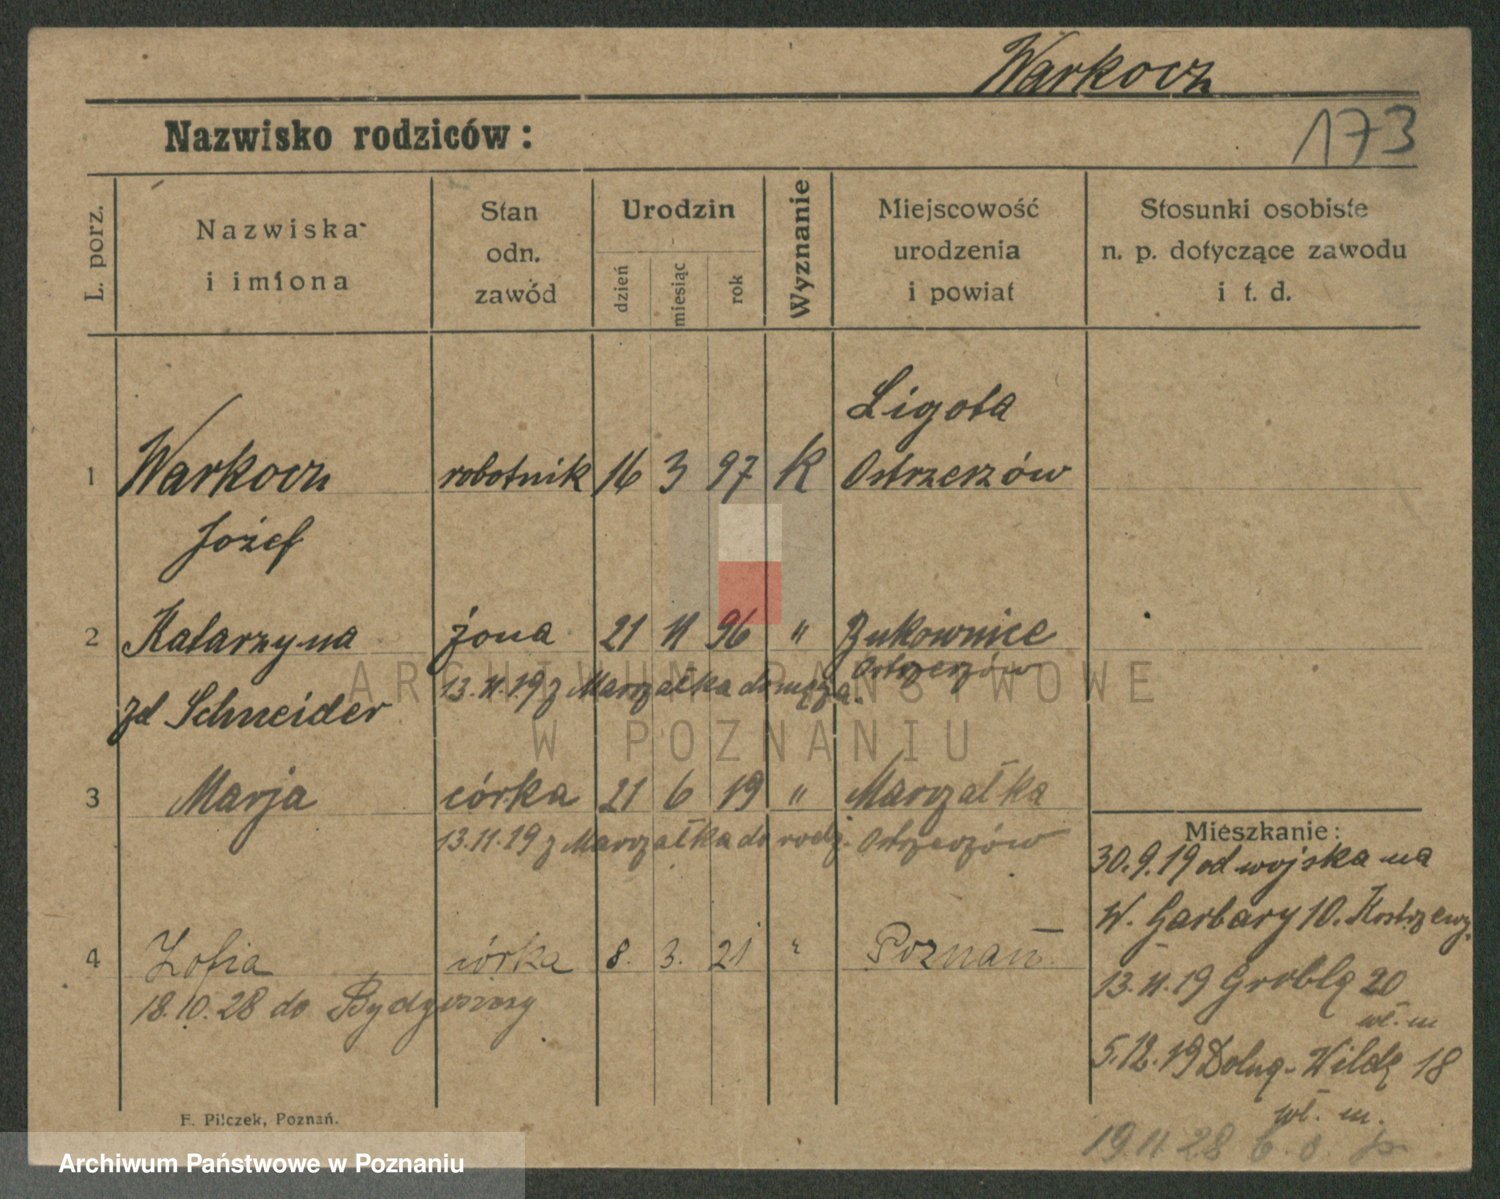 Warkocz
173
Nazwisko rodziców:
L. porz.
Nazwiska
i imiona
Stan
odn.
zawód
Urodzin
dzień
miesiąc
rok
Wyznanie
Miejscowość
urodzenia
i powiat
Stosunki osobiste
n. p. dotyczące zawodu
i t. d.
Ligota
1 Warkocz robotnik 16 3 97 K Ostrzerzów
Józef
2 Katarzyna żona 21 11 96 " Bukownice
Ostrzerzów
13.11.19 z Marszałka do męża.
zd Schneider
3 Marja córka 21 6 19 " Marszałka
13.11.19 z Marszałka do rodz. Ostrzerzów
4 Zofia córka 8. 3. 21 " Poznań
18.10.28 do Bydgoszczy
Mieszkanie:
30.9.19 od wojska na
W. Garbary 10. Kostrzewy.
13.11.19 Groblą 20
wł. m
5.12.19 Dolną-Wildę 18
wł. m.
19 11 28
F. Pilczek, Poznań.
ARCHIWUM PAŃSTWOWE
W POZNANIU
Archiwum Państwowe w Poznaniu